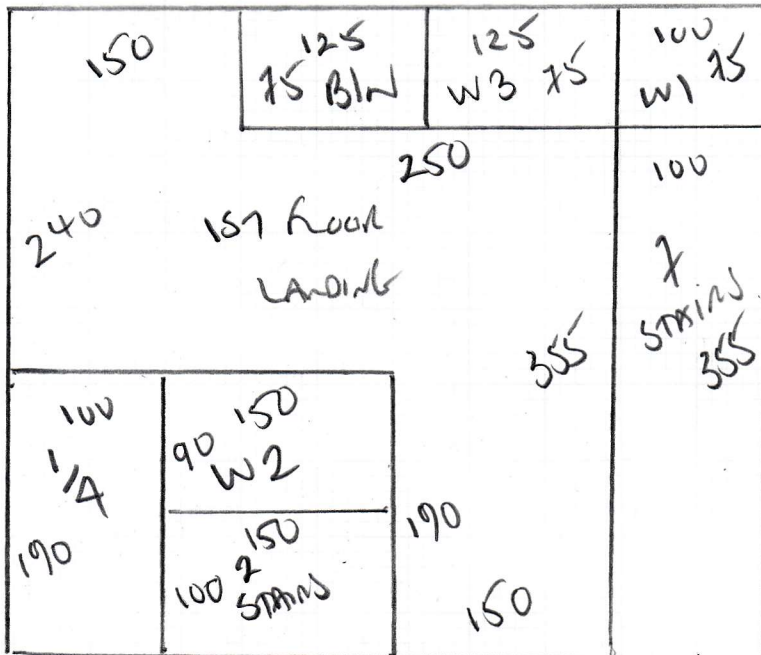 150
125
75 BIN
125
W3 75
100
W1 75
250
100
240
1ST FLOOR
LANDING
7
STAIRS
355
355
100
1/4
190
150
90 W2
150
100 2
STAIRS
190
150